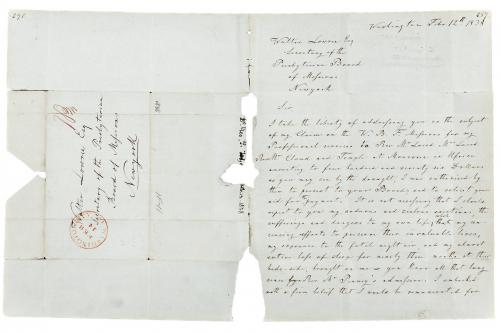 291
297
Washington Feb. 12th 183
Walter Lowrie Esq
Secretary of the
Presbyterian Board
of Missions
New york
Sir
I take the liberty of addressing you on the subject
of my Claim on the W. B. F. Missions for my
Professional services to Rev. Mr Laird Mrs Laird
Revd Mr Cloud and Temple at Monrovia in Africa
amounting to five hundred and ninety six Dollars
as you may see by the
them to present to your Board, and to solicit your
aid for payment. It is not necessary that I should
repeat to you my arduous and exclusive exertions, the
sufferings and dangers to my own life, my
ceasing efforts to preserve their invaluable lives,
my exposure to the fatal night air and my almost
entire loss of sleep for nearly three months at their
bedside, brought on me as you know all that long
Revd Mr Pinney's I embarked
with a firm belief that I would be remunerated for
Walter Lowrie Esq
Secretary of the Presbyterian
Board of Missions
New york
18¾
FEB